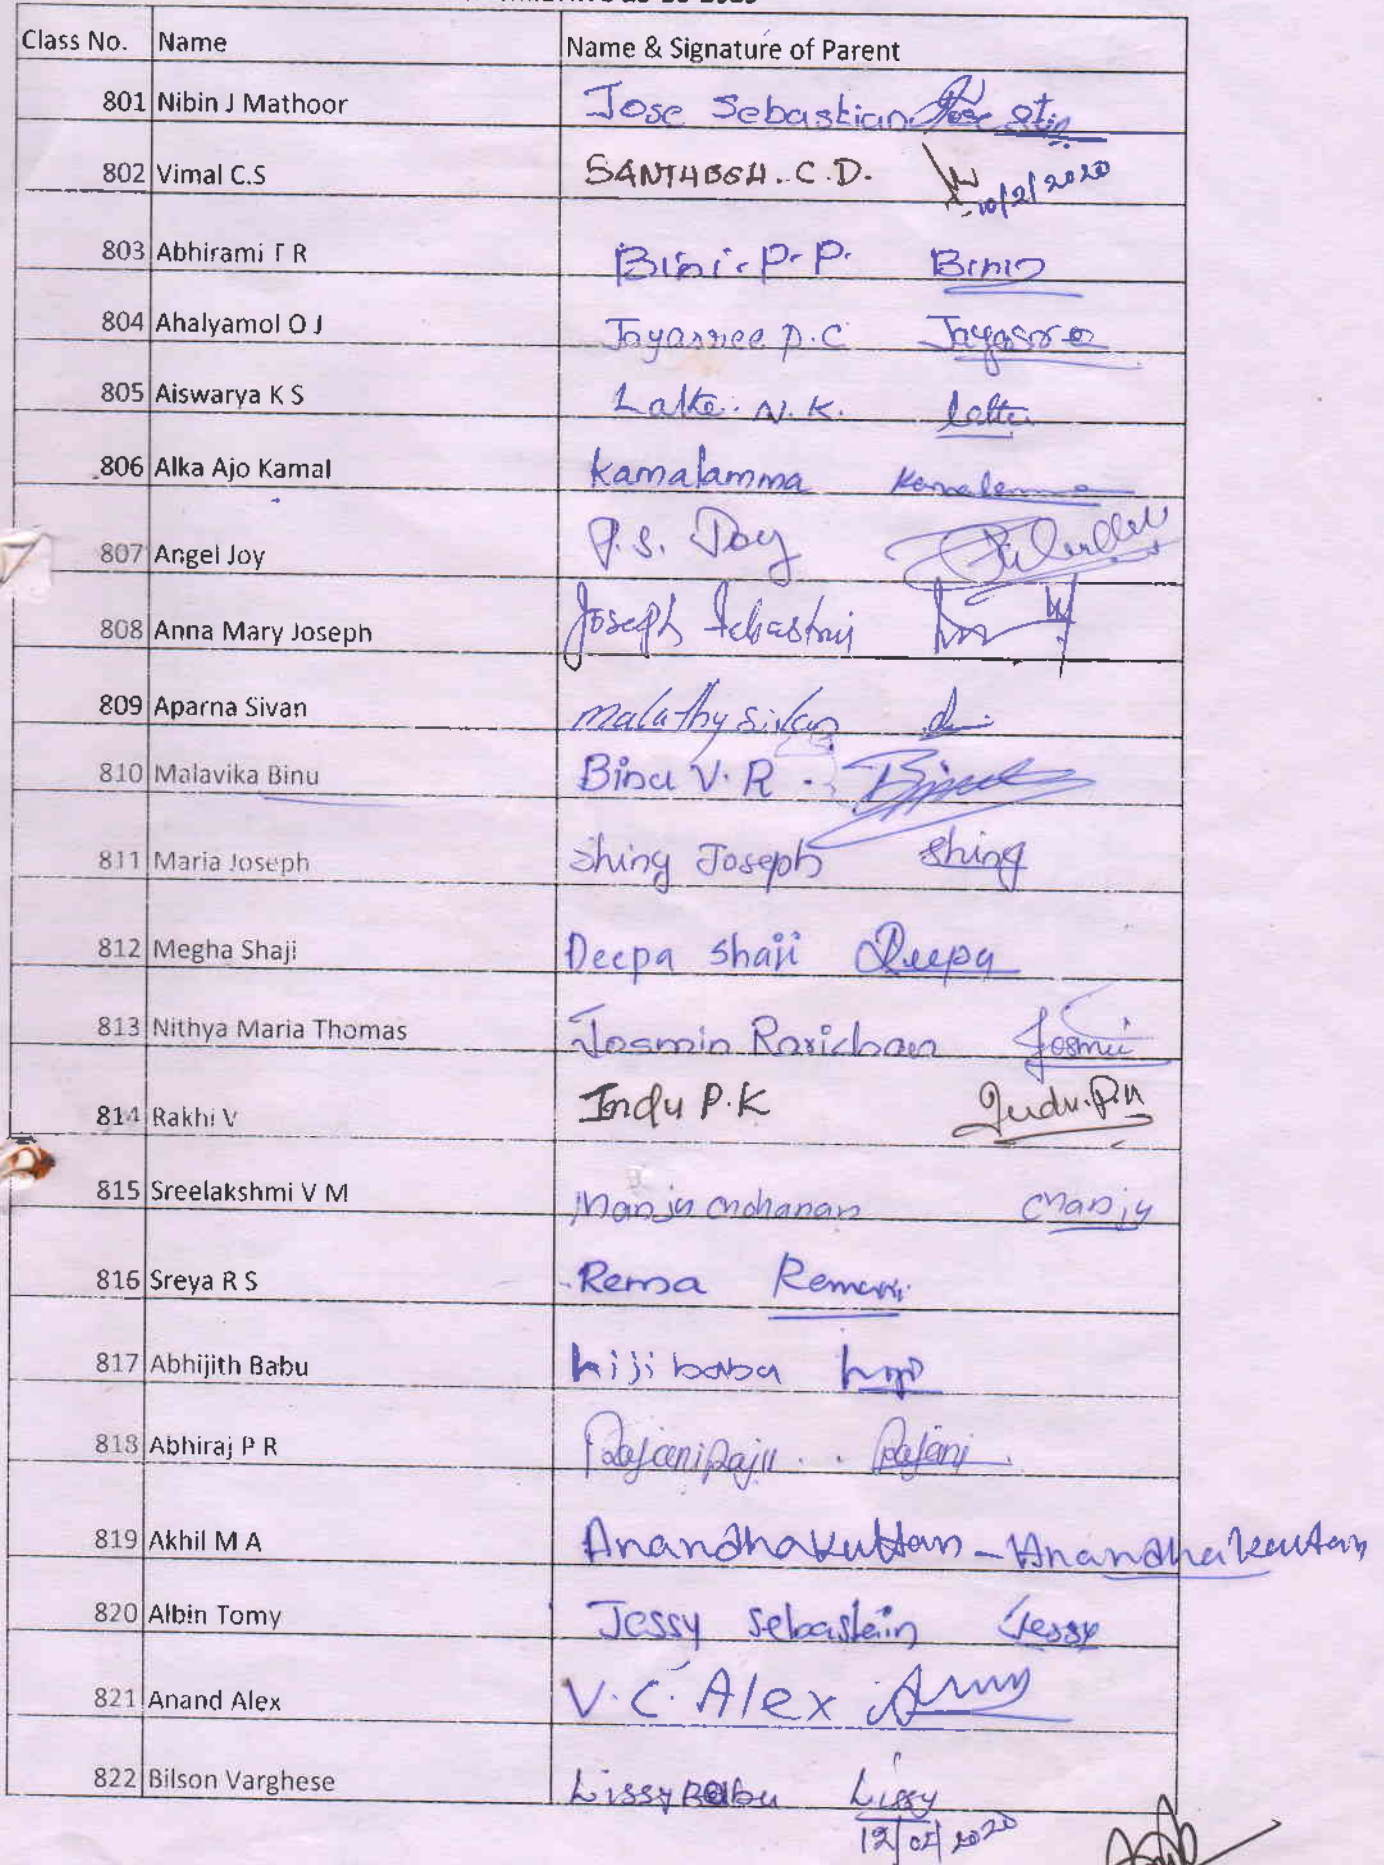 Class No. Name Name & Signature of Parent
801 Nibin J Mathoor Jose Sebastian Jose
802 Vimal C.S SANTHOSH. C.D. 10/2/2020
803 Abhirami T R Bini. P. P. Bini
804 Ahalyamol O J Jayasree P.C Jayasree
805 Aiswarya K S Latha. N. K. Latha
806 Alka Ajo Kamal Kamalamma Kamalamma
807 Angel Joy P.S. Joy
808 Anna Mary Joseph Joseph Sebastian
809 Aparna Sivan Malathy Sivan
810 Malavika Binu Binu V. R. Binu
811 Maria Joseph Shing Joseph Shing
812 Megha Shaji Deepa Shaji Deepa
813 Nithya Maria Thomas Josmin Rorichan Josmin
814 Rakhi V Indu P.K Indu. P.K
815 Sreelakshmi V M Manju Mohanan Manju
816 Sreya R S Rema Rema
817 Abhijith Babu hiji baba
818 Abhiraj P R Rajani Raju Rajani
819 Akhil M A Anandhakuttan - Anandhakuttan
820 Albin Tomy Jessy Sebastein Jessy
821 Anand Alex V. C. Alex
822 Bilson Varghese Lissy Babu Lissy
12/02/2020